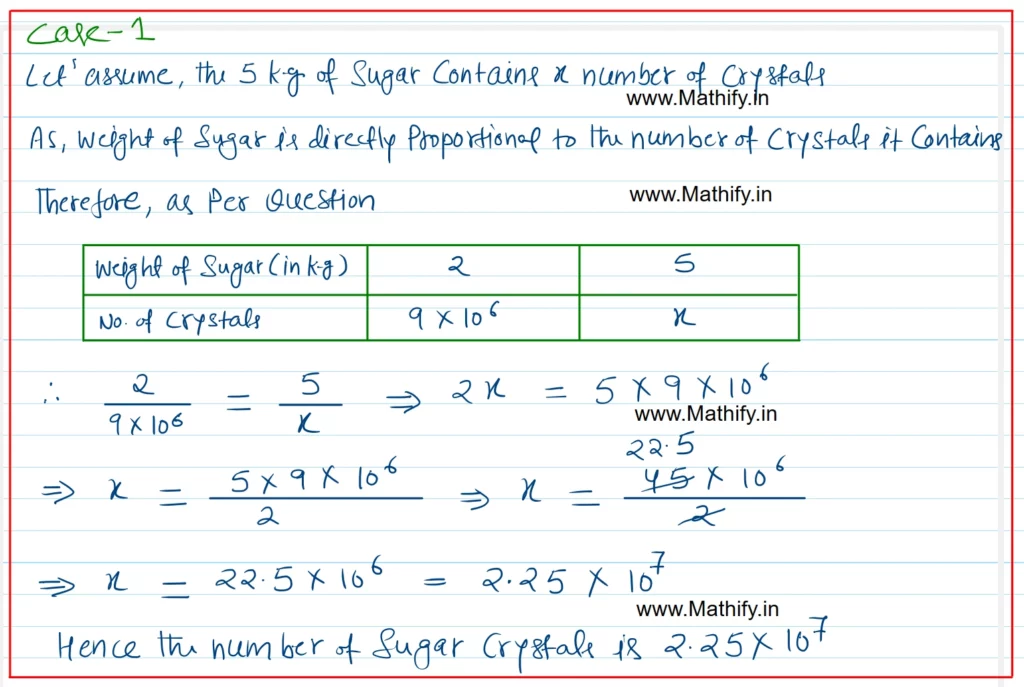 Case-1
Let' assume, the 5 k.g of Sugar Contains x number of Crystals
www.Mathify.in
As, weight of Sugar is directly Proportional to the number of Crystals it Contains
Therefore, as Per Question
www.Mathify.in
Weight of Sugar (in k.g) 2 5
No. of Crystals 9 × 10⁶ x
∴ 2/(9 × 10⁶) = 5/x ⇒ 2x = 5 × 9 × 10⁶
www.Mathify.in
22.5
⇒ x = (5 × 9 × 10⁶)/2 ⇒ x = (45 × 10⁶)/2
⇒ x = 22.5 × 10⁶ = 2.25 × 10⁷
www.Mathify.in
Hence the number of Sugar Crystals is 2.25 × 10⁷